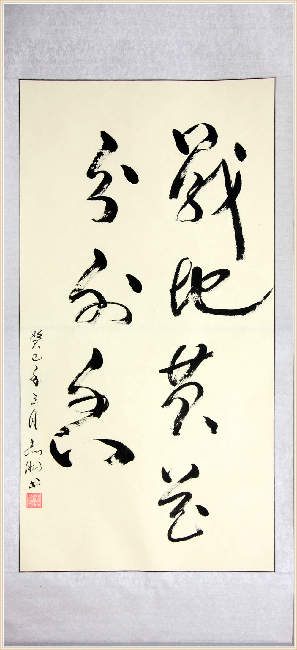 戰地黄花
分外香
癸巳年三月
书